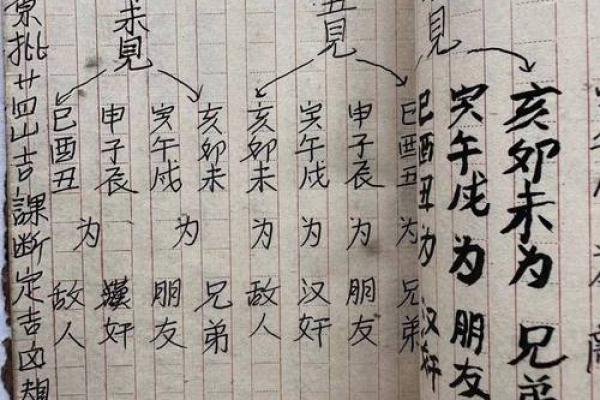 見
亥卯未为兄弟
寅午戌为朋友
巳酉丑为汉奸
丑見
巳酉丑为兄弟
申子辰为朋友
寅午戌为汉奸
亥卯未为敌人
未見
亥卯未兄弟
寅午戌为朋友
申子辰漢奸
巳酉丑为敌人
批廿四山吉課断定吉凶